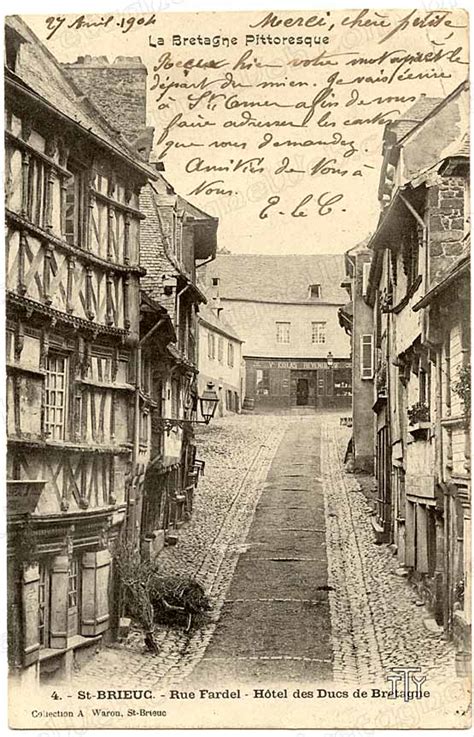 27 Avril 1904
Merci, chère petite
La Bretagne Pittoresque
Reçu hier votre mot après le
départ du mien. Je vais écrire
à St afin de vous
faire adresser les cartes
que vous demandez.
Amitiés de Nous à
Nous.
E. L. C.
4. - St-BRIEUC. - Rue Fardel - Hôtel des Ducs de Bretagne
Collection A Waron, St-Brieuc
TTY